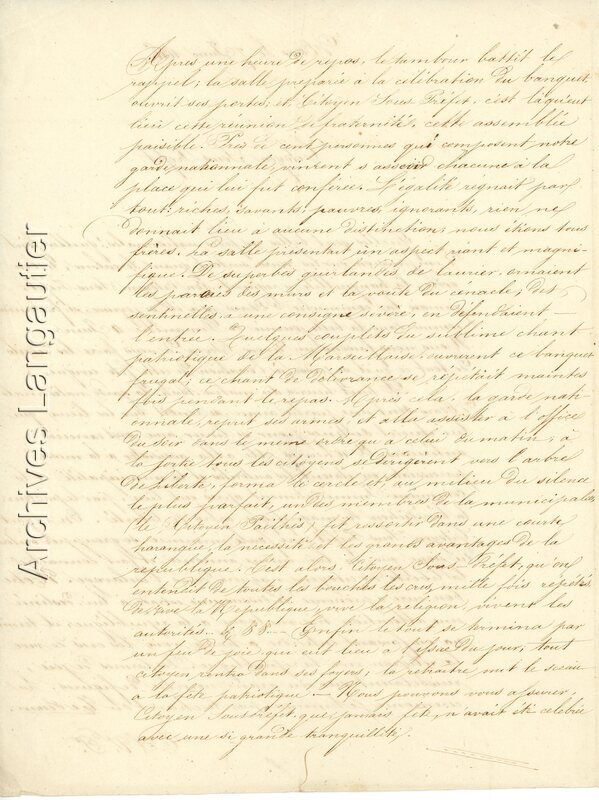 Après une heure de repos, le tambour battit le
rappel; la salle préparée à la célébration du banquet
ouvrit ses portes, et Citoyen Sous Préfet, c'est là qu'eut
lieu cette réunion de fraternité, cette assemblée
paisible. Près de cent personnes qui composent notre
garde nationnale, vinrent s'asseoir chacune à la
place qui lui fut conférée. L'égalité régnait par
tout: riches, savants, pauvres, ignorants, rien ne
donnait lieu à aucune distinction; nous étions tous
frères. La salle présentait un aspect riant et magni-
fique: De superbes guirlandes de laurier, ornaient
les parois des murs et la voute du cénacle; des
sentinelles, à une consigne sévère, en défendaient
l'entrée. Quelques couplets du sublime chant
patriotique de la Marseillaise, ouvrirent ce banquet
frugal; ce chant de délivrance se répétait maintes
fois pendant le repas. Après cela, la garde nati-
onnale, reprit ses armes, et alla assister à l'office
du soir dans le même ordre qu'à celui du matin; à
la sortie tous les citoyens, se dirigèrent vers l'arbre
de Liberté, forma le cercle et au milieu du silence
le plus parfait, un des membres de la municipalité
le Citoyen Pailhès, fit ressortir dans une courte
harangue, la nécessité et les grands avantages de la
république. C'est alors, Citoyen Sous Préfet, qu'on
entendit de toutes les bouches les cris, mille fois répétés
de Vive la République, vive la religion, vivent les
autorités. Enfin le tout se termina par
un feu de joie qui eut lieu à l'issue du jour; tout
citoyen rentra dans ses foyers, la retraite mit le sceau
à la fête patriotique — Nous pouvons vous assurer,
Citoyen Sous Préfet, que jamais fête, n'avait été célébrée
avec une si grande tranquillité.
Archives Langautier